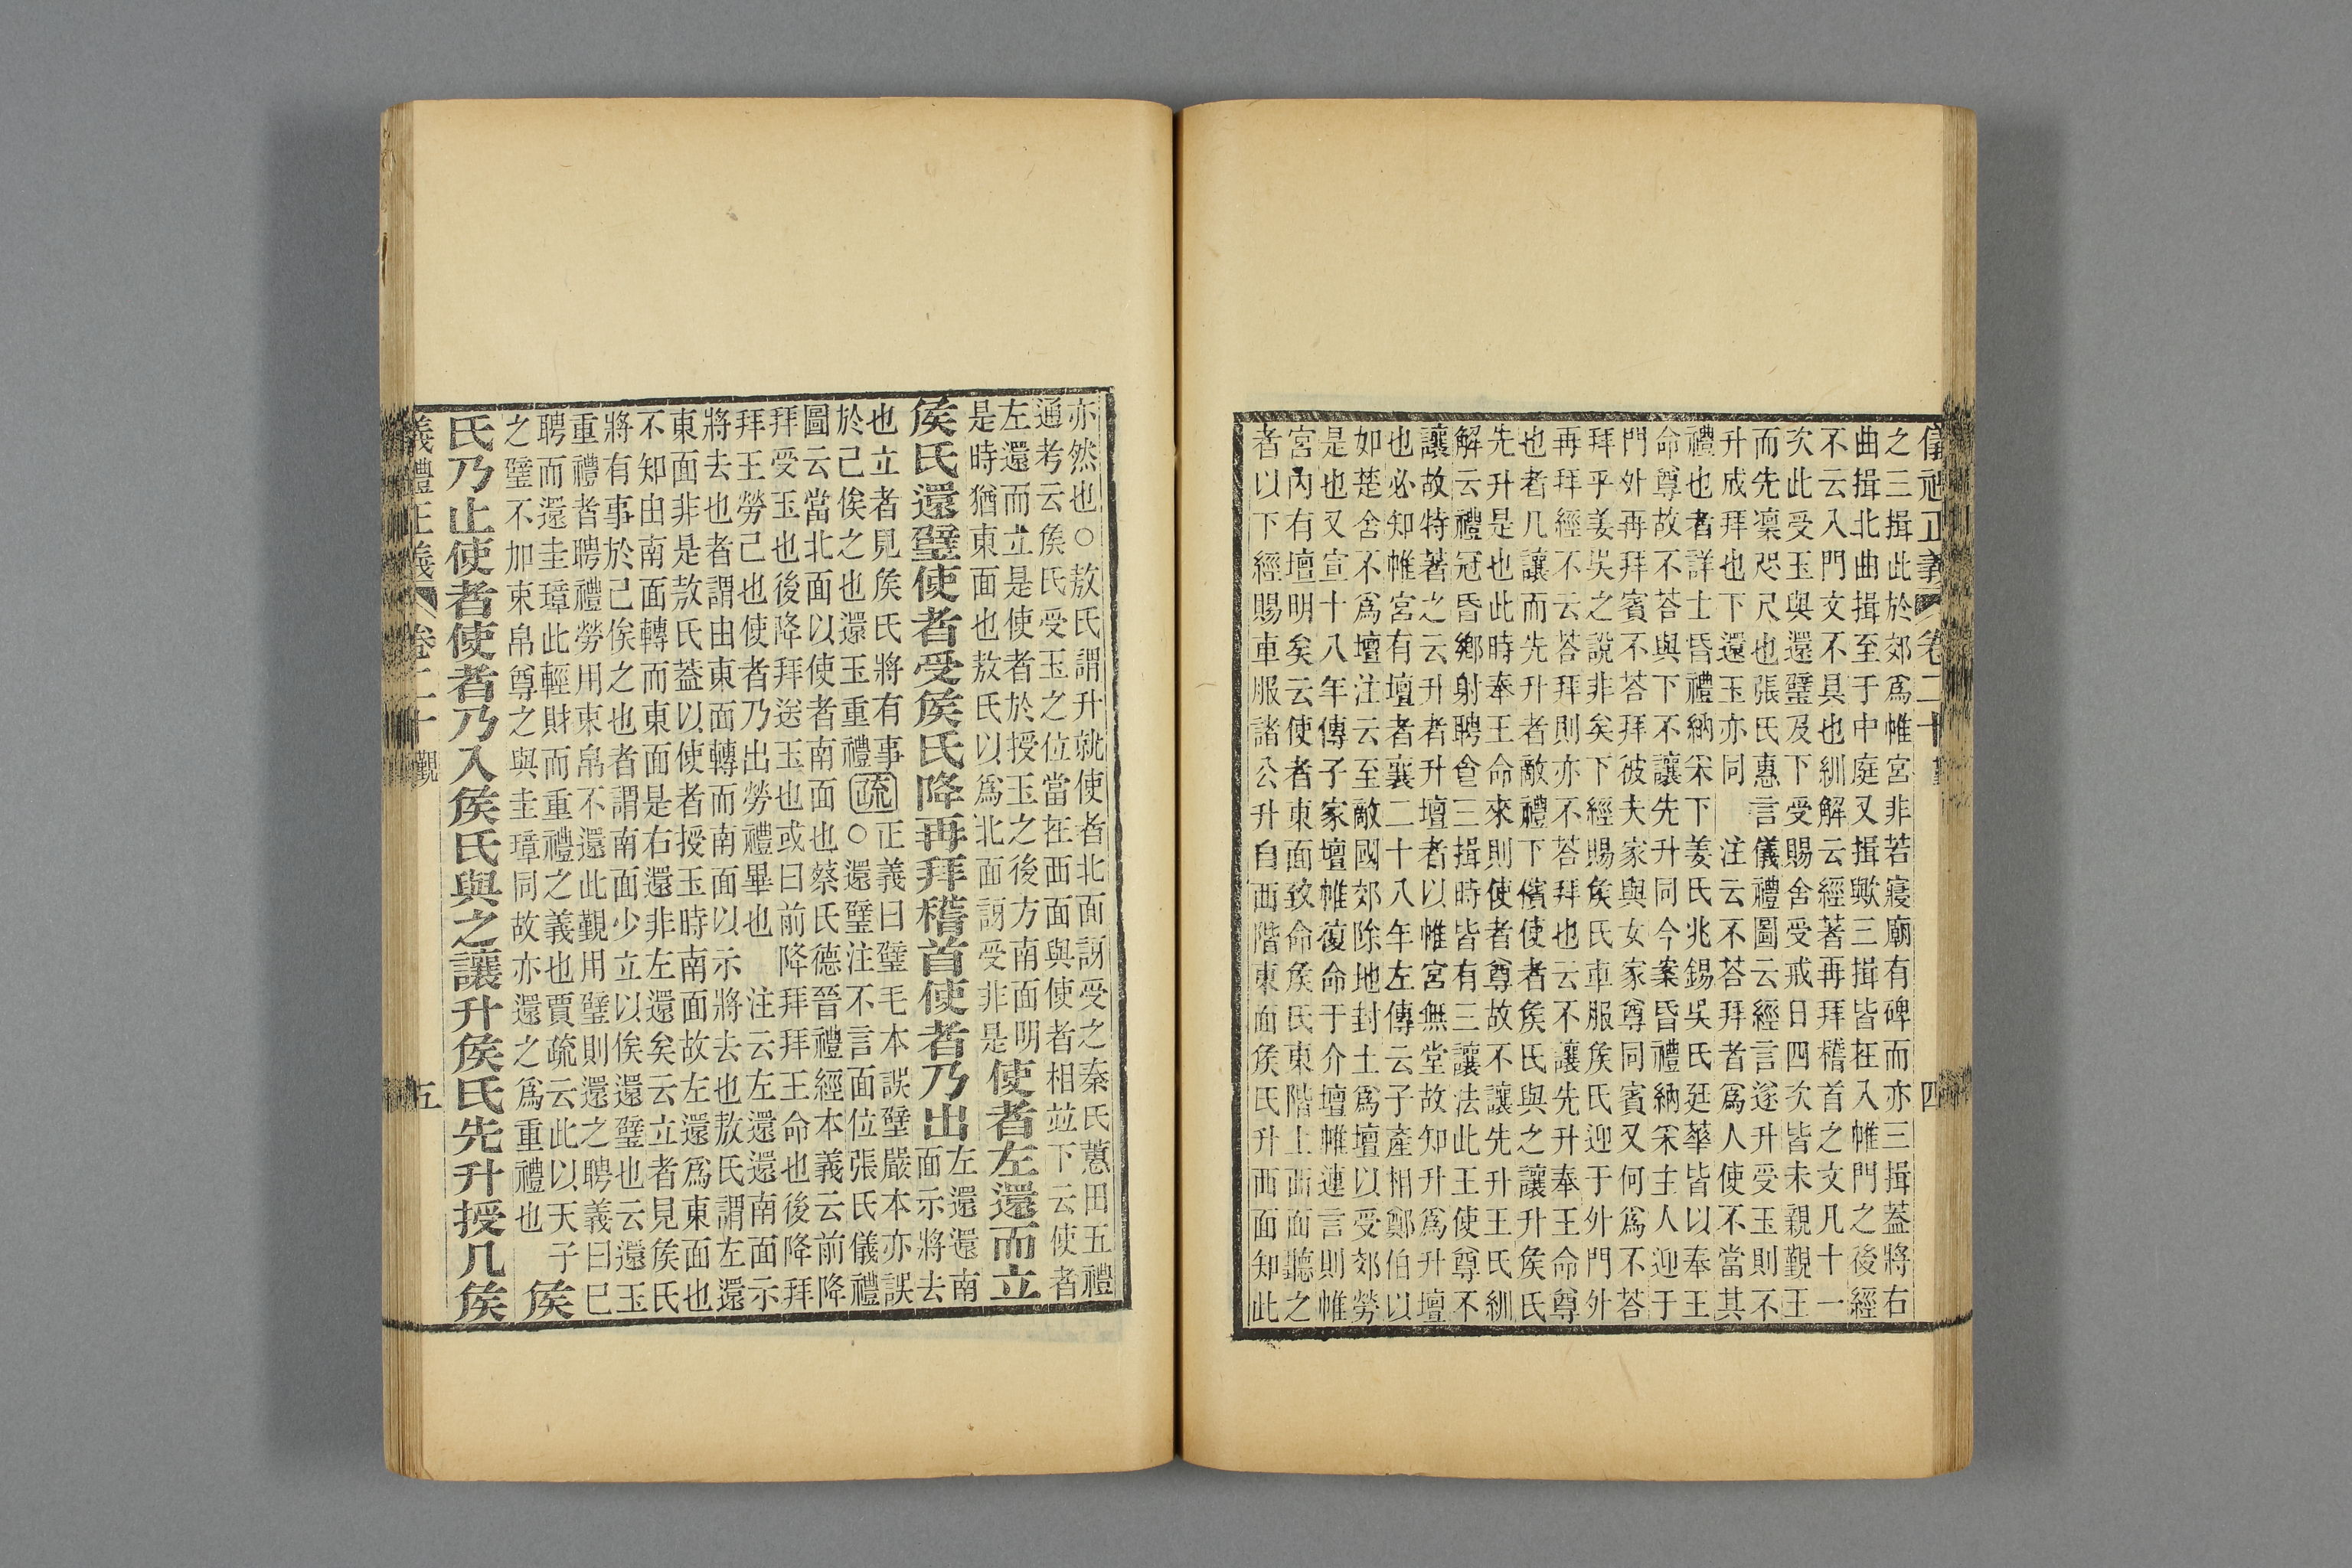 儀禮正義 卷二十 覲 四
之三揖此於郊爲帷宮非若寢廟有碑而亦三揖葢將右
曲揖北曲揖至于中庭又揖歟三揖皆在入帷門之後經
不云入門文不具也紃解云經著再拜稽首之文凡十一
次此受玉與還璧及下受賜舍受戒日四次皆未親覲王
而先凛咫尺也張氏惠言儀禮圖云經言遂升受玉則不
升成拜也下還玉亦同　注云不荅拜者爲人使不當其
禮也者詳士昏禮納采下姜氏兆錫吳氏廷華皆以奉王
命尊故不荅與下不讓先升同今案昏禮納采主人迎于
門外再拜賓不荅拜彼夫家與女家尊同賓又何爲不荅
拜乎姜吳之說非矣下經賜矦氏車服矦氏迎于外門外
再拜經不云荅拜則亦不荅拜也云不讓先升奉王命尊
也者几讓而先升者敵禮下儐使者矦氏與之讓升矦氏
先升是也此時奉王命來則使者尊故不讓先升王氏紃
解云禮冠昏鄉射聘食三揖時皆有三讓法此王使尊不
讓故特著之云升者升壇者以帷宮無堂故知升爲升壇
也必知帷宮有壇者襄二十八年左傳云子產相鄭伯以
如楚舍不爲壇注云至敵國郊除地封土爲壇以受郊勞
是也又宣十八年傳子家壇帷復命于介壇帷連言則帷
宮內有壇明矣云使者東面致命矦氏東階上西面聽之
者以下經賜車服諸公升自西階東面矦氏升西面知此
亦然也○敖氏謂升就使者北面訝受之秦氏蕙田五禮
通考云矦氏受玉之位當在西面與使者相竝下云使者
左還而立是使者於授玉之後方南面明
是時猶東面也敖氏以爲北面訝受非是
使者左還而立
矦氏還璧使者受矦氏降再拜稽首使者乃出
左還還南
面示將去
也立者見矦氏將有事
於己俟之也還玉重禮
疏
正義曰璧毛本誤璧嚴本亦誤
○還璧注不言面位張氏儀禮
圖云當北面以使者南面也蔡氏德晉禮經本義云前降
拜受玉也後降拜送玉也或曰前降拜拜王命也後降拜
拜王勞己也使者乃出勞禮畢也　注云左還還南面示
將去也者謂由東面轉而南面以示將去也敖氏謂左還
東面非是敖氏葢以使者授玉時南面故左還爲東面也
不知由南面轉而東面是右還非左還矣云立者見矦氏
將有事於己俟之也者謂南面少立以俟還璧也云還玉
重禮者聘禮勞用束帛不還此覲用璧則還之聘義曰已
聘而還圭璋此輕財而重禮之義也賈疏云此以天子
之璧不加束帛尊之與圭璋同故亦還之爲重禮也
矦
氏乃止使者使者乃入矦氏與之讓升矦氏先升授几矦
義禮正義 卷二十 覲 五